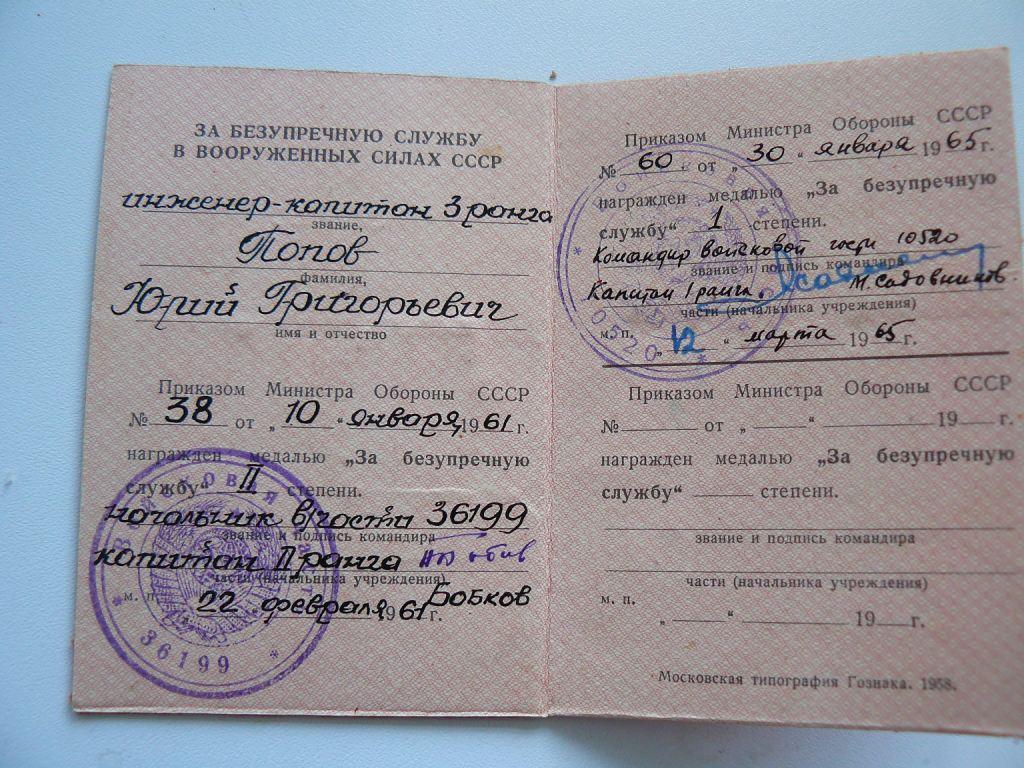 ЗА БЕЗУПРЕЧНУЮ СЛУЖБУ
В ВООРУЖЕННЫХ СИЛАХ СССР
инженер-капитан 3 ранга
звание,
Попов
фамилия,
Юрий Григорьевич
имя и отчество
Приказом Министра Обороны СССР
№ 38 от „ 10 “ января 1961 г.
награжден медалью „За безупречную
службу“ II степени.
начальник в/части 36199
звание и подпись командира
капитан II ранга
части (начальника учреждения)
Бобков
м. п. „ 22 “ февраля 1961 г.
Войсковая часть
* 36199 *
Приказом Министра Обороны СССР
№ 60 от „ 30 “ января 1965 г.
награжден медалью „За безупречную
службу“ 1 степени.
Командир войсковой части 10520
звание и подпись командира
Капитан 1 ранга. М. Садовников
части (начальника учреждения)
м. п. „ 12 “ марта 1965 г.
Приказом Министра Обороны СССР
№ от „ “ 19 г.
награжден медалью „За безупречную
службу“ степени.
звание и подпись командира
части (начальника учреждения)
м. п.
„ “ 19 г.
Московская типография Гознака. 1958.